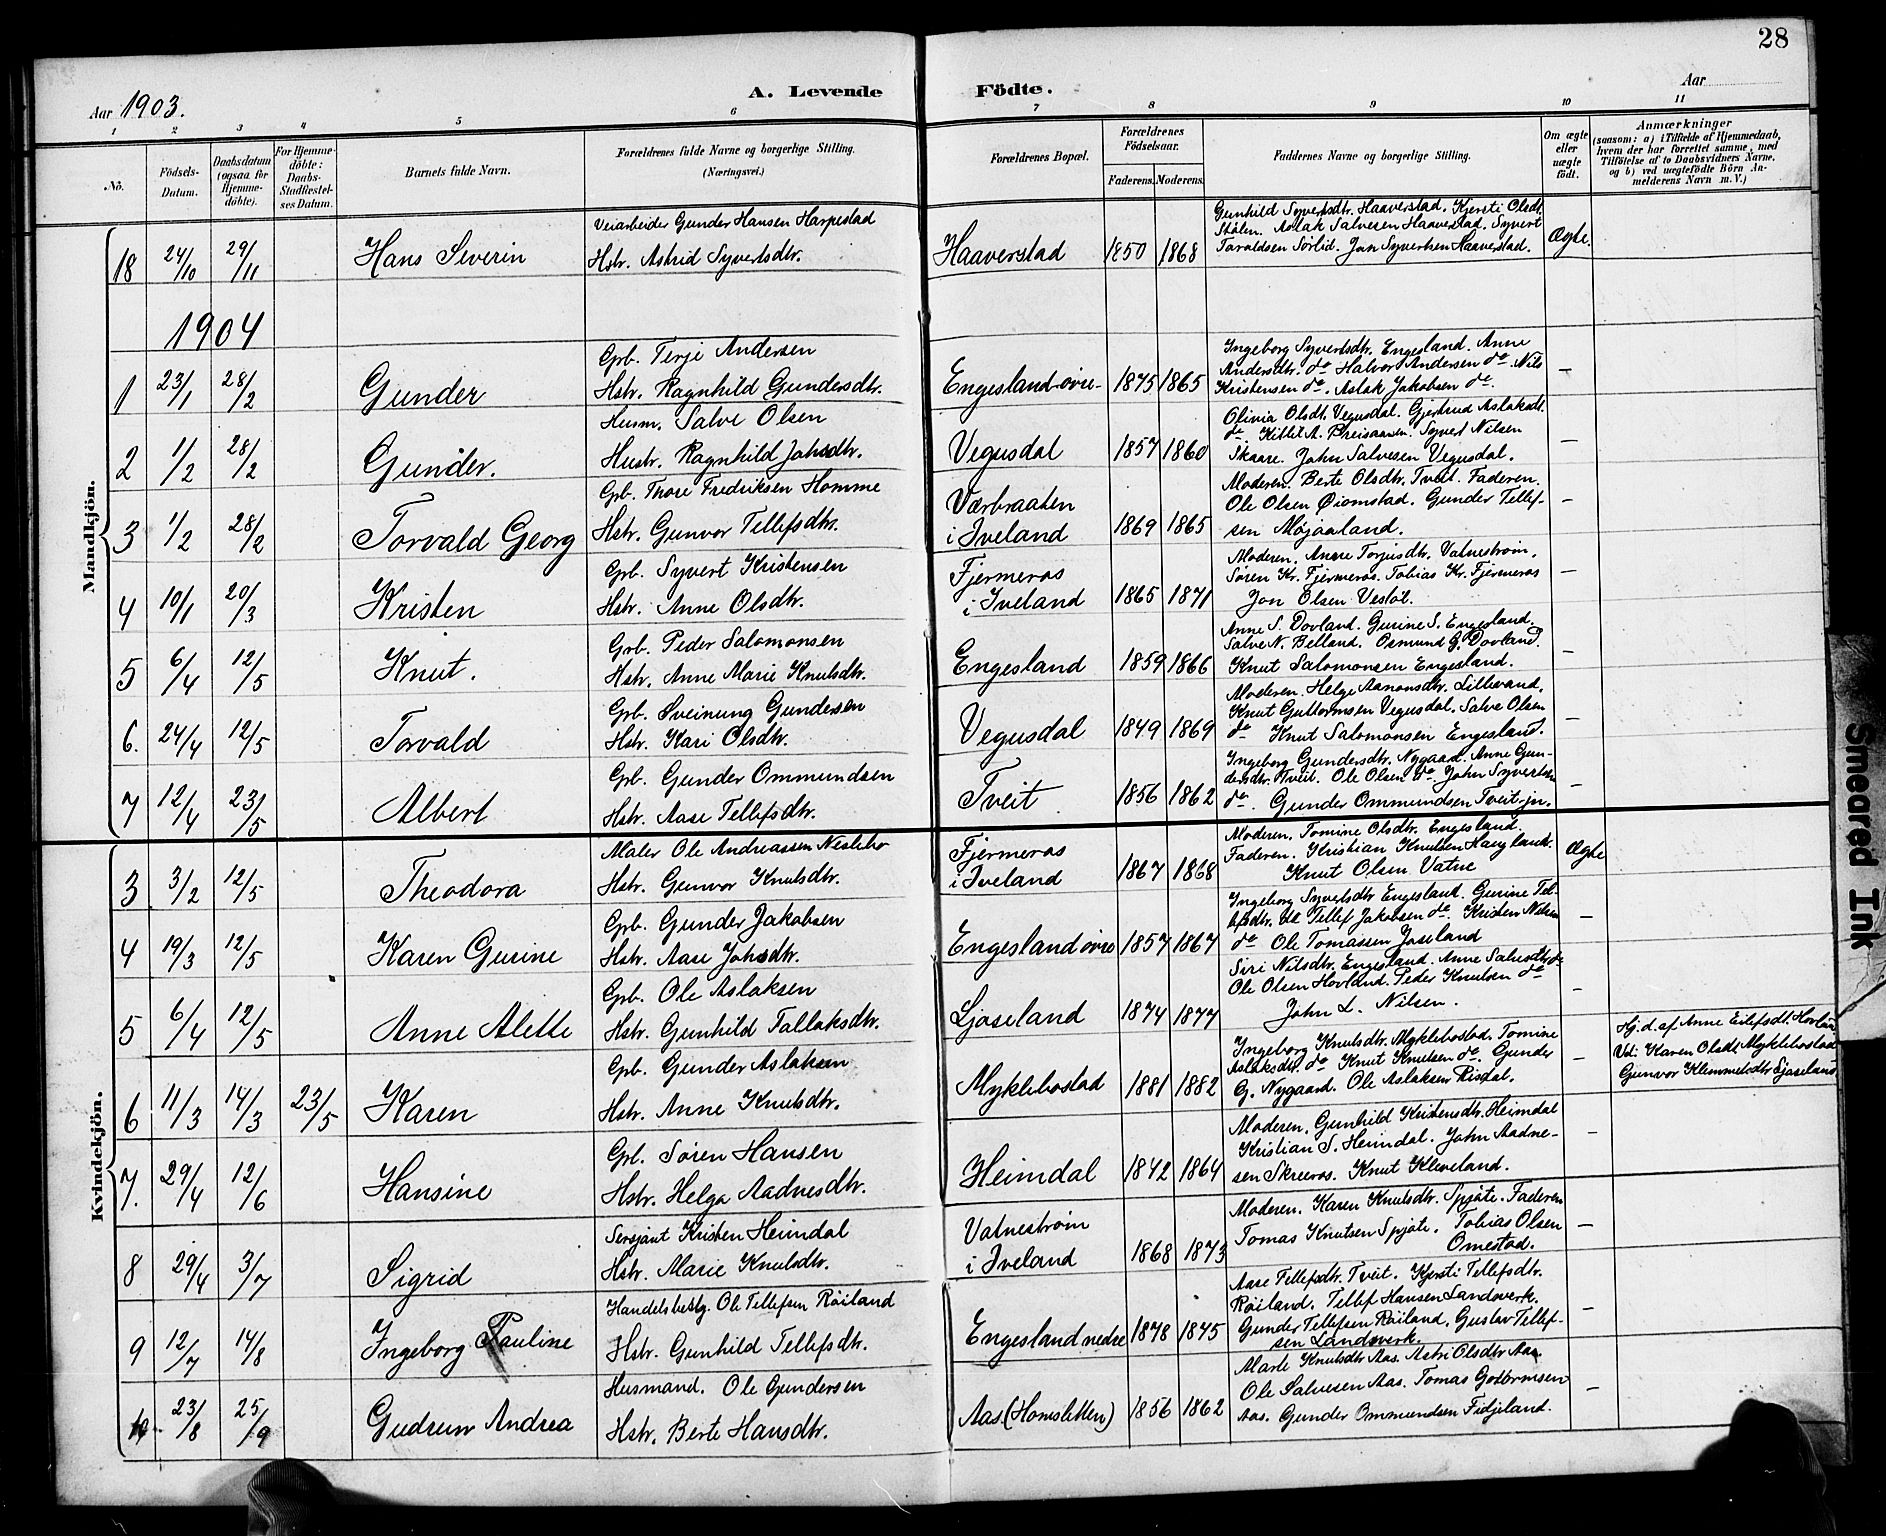 28
Aar 1903.
A. Levende Födte.
Aar
1 2 3 4 5 6 7 8 9 10 11
No.
Födsels-Datum.
Daabsdatum (ogsaa for Hjemme-döbte).
For Hjemme-döbte: Daabs-Stadfæstel-ses Datum.
Barnets fulde Navn.
Forældrenes fulde Navne og borgerlige Stilling. (Næringsvei.)
Forældrenes Bopæl.
Forældrenes Födselsaar.
Faderens. Moderens.
Faddernes Navne og borgerlige Stilling.
Om ægte eller uægte födt.
Anmærkninger
(saasom: a) i Tilfælde af Hjemmedaab,
hvem der har forrettet samme, med
Tilföielse af to Daabsvidners Navne,
og b) ved uægtefödte Börn An-
melderens Navn m.V.)
Mandkjön.
18 24/10 29/11 Hans Severin
Veiarbeider Gunder Hansen Harpestad
Hstr. Astrid Syvertsdtr.
Haaverstad 1850 1868
Gunhild Syvertsdtr. Haaverstad. Kjersti Olsdt.
Stölen. Aslak Salvesen Haaverstad. Syvert
Taraldsen Sörlid. Jon Syvertsen Haaverstad.
Ægte.
1904
1 23/1 28/2 Gunder
Grb. Terje Andersen
Hstr. Ragnhild Gundersdtr.
Engesland övre 1875 1865
Ingeborg Syvertsdtr. Engesland. Anne
Andersdtr. do Halvor Andersen do Nils
Kristensen do. Aslak Jakobsen do.
—
2 1/2 28/2 Gunder.
Husm. Salve Olsen
Hustr. Ragnhild Johsdtr.
Vegusdal 1857 1860
Olivia Olsdt. Vegusdal. Gjertrud Aslaksdt.
do. Kittil A. Syvert Nilsen
Skaare. John Salvesen Vegusdal.
—
3 1/2 28/2 Torvald Georg
Grb. Thore Fredriksen Homme
Hstr. Gunvor Tellefsdtr.
Værbraaten
i Iveland 1869 1865
Moderen. Berte Olsdtr. Tveit. Faderen.
Ole Olsen Øiomstad. Gunder Tellef-
sen Møjaaland.
—
4 10/1 20/3 Kristen
Grb. Syvert Kristensen
Hstr. Anne Olsdtr.
Fjermeros
i Iveland 1865 1871
Moderen. Anne Torjusdtr. Vatneström.
Sören Kr. Fjermeros. Tobias Kr. Fjermeros
Jon Olsen Vestöl.
—
5 6/4 12/5 Knut.
Grb. Peder Salomonsen
Hstr. Anne Marie Knutsdtr.
Engesland 1859 1866
Anne S. Dovland. Gurine S. Engesland.
Salve N. Belland. Osmund G. Dovland.
Knut Salomonsen Engesland.
—
6. 24/4 12/5 Torvald
Grb. Sveinung Gundersen
Hstr. Kari Olsdtr.
Vegusdal 1849 1869
Moderen. Helge Aanonsdtr. Lillevand.
Knut Guttormsen Vegusdal. Salve Olsen
do Knut Salomonsen Engesland.
—
7 12/4 23/5 Albert
Grb. Gunder Ommundsen
Hstr. Aase Tellefsdtr.
Tveit 1856 1862
Ingeborg Gundersdtr. Nygaard. Anne Gun-
dersdtr. Tveit. Ole Olsen do. John Syvertsen
do. Gunder Ommundsen Tveit-jn.
—
Kvindekjön.
3 3/2 12/5 Theodora
Maler Ole AndreassenNeslebo
Hstr. Gunvor Knutsdtr.
Fjermeros
i Iveland 1867 1868
Moderen. Tomine Olsdtr. Engesland.
Faderen. Kristian Knutsen Haugland.
Knut Olsen Vatne
Ægte
4 19/3 12/5 Karen Gurine
Grb. Gunder Jakobsen
Hstr. Aase Johsdtr.
Engesland övre 1857 1867
Ingeborg Syvertsdtr Engesland. Gurine Tel-
lefsdtr. do Tellef Jakobsen do. Kristen Nilsen
do Ole Tomassen Joseland
—
5 6/4 12/5 Anne Alette
Grb. Ole Aslaksen
Hstr. Gunhild Tallaksdtr.
Ljoseland 1874 1877
Siri Nilsdtr. Engesland. Anne Salvesdtr do
Ole Olsen Hovland. Peder Knutsen do
John L. Nilsen.
—
6 11/3 14/3 23/5 Karen
Grb. Gunder Aslaksen
Hstr. Anne Knutsdtr.
Myklebostad 1881 1882
Ingeborg Knutsdtr. Myklebostad. Tomine
Aslaksdtr. do Knut Knutsen do. Gunder
G. Nygaard. Ole Aslaksen Risdal.
—
Hj. d. af Anne Eilefsdt. Hovland
Vid: Karen Olsdt. Myklebostad
Gunvor Klemmetsdtr Ljoseland
7. 29/4 12/6 Hansine
Grb. Sören Hansen
Hstr. Helga Aadnesdtr.
Heimdal 1842 1864
Moderen. Gunhild Kristensdtr. Heimdal
Kristian S. Heimdal. John Aadne-
sen Skreros. Knut Kleveland.
—
8 29/4 3/7 Sigrid
Sersjant Kristen Heimdal
Hstr. Marie Knutsdtr.
Vatneström
i Iveland 1868 1873
Moderen. Karen Knutsdtr. Spjöte. Faderen
Tomas Knutsen Spjöte. Tobias Olsen
Omestad.
—
9 12/7 14/8 Ingeborg Pauline
Handelsbestg. Ole Tellefsen Röiland
Hstr. Gunhild Tellefsdtr.
Engesland nedre 1878 1875
Aase Tellefsdtr. Tveit. Kjersti Tellefsdtr.
Röiland. Tellef Hansen Landverk.
Gunder Tellefsen Röiland. Gustav Tellef-
sen Landverk.
—
10 23/8 25/9 Gudrun Andrea
Husmand. Ole Gundersen
Hstr. Berte Hansdtr.
Aas (Homsletten) 1856 1862
Marte Knutsdtr Aas. Astri Olsdtr Aas
Ole Salvesen Aas. Tomas Gottormsen
Aas. Gunder Ommundsen Fidjeland.
—
Smeared Ink